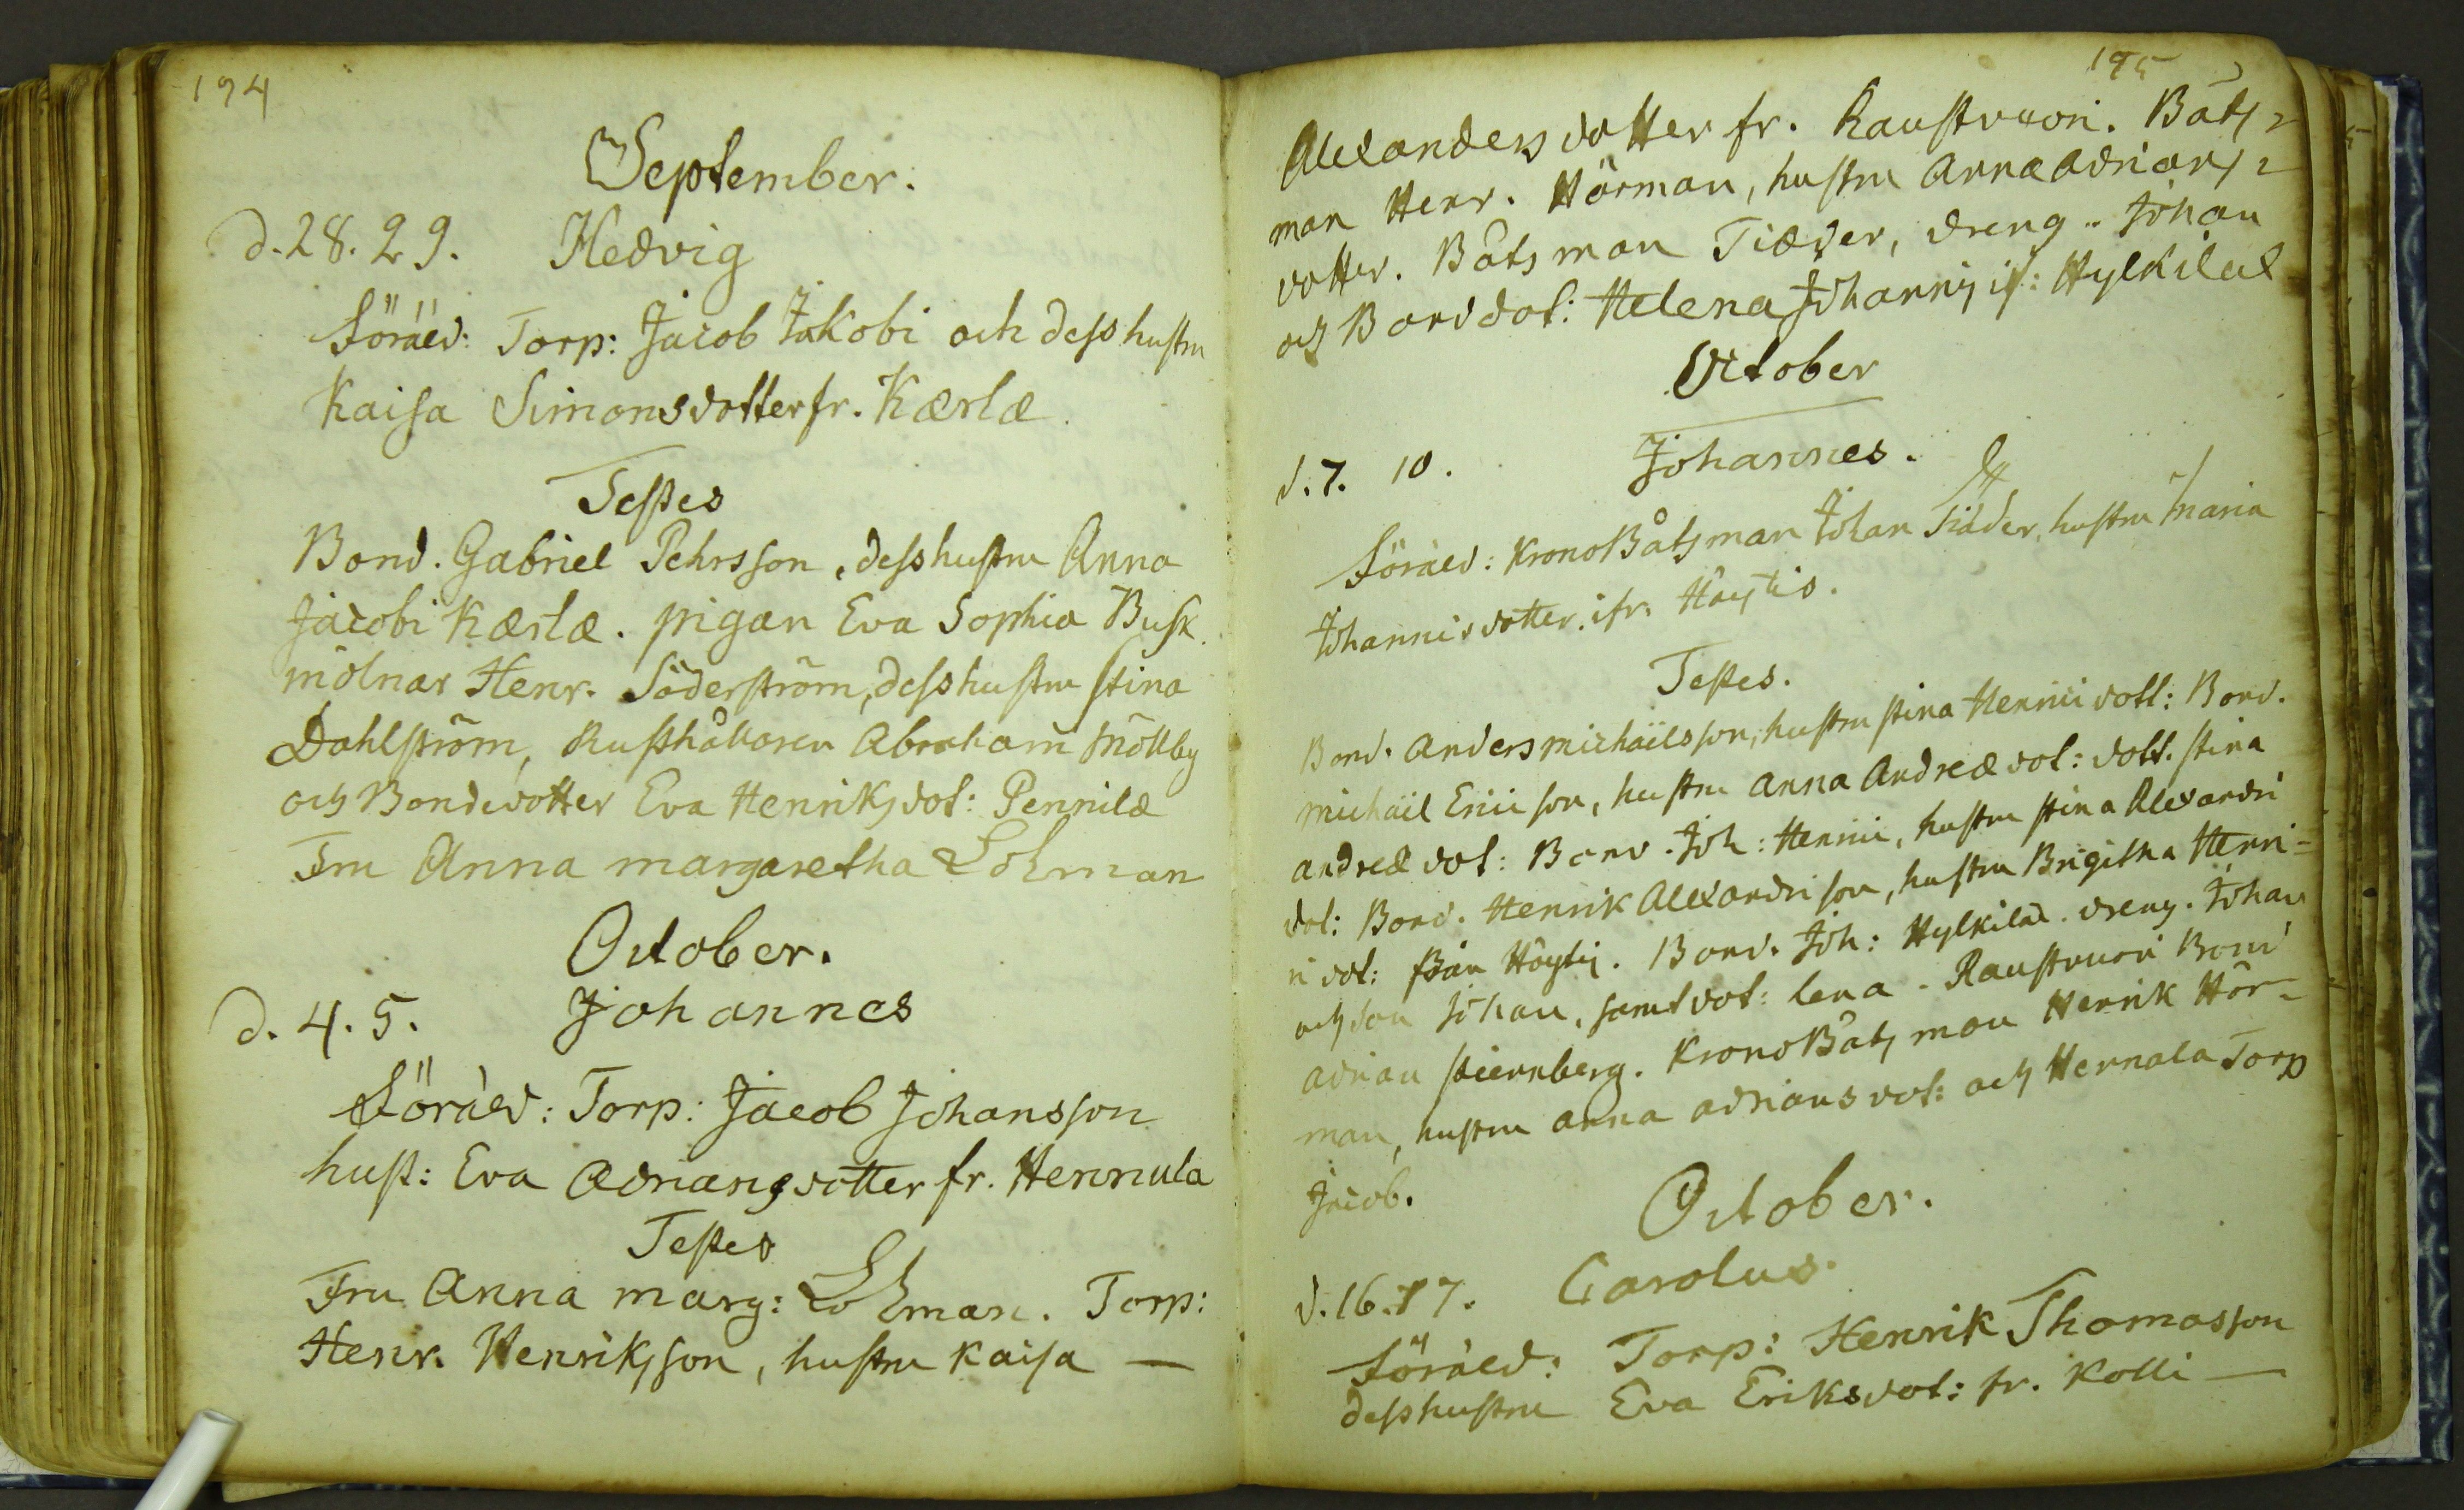 194
September.
d. 28. 29. Hedvig
Föräld: Torp: Jacob Jakobi och dess hustru
Kaisa Simonsdotter fr. Kærlæ.
Testes
Bond. Gabriel Pehrsson, dess hustru Anna
Jacobi Kærlæ. pigan Eva Sophia Busk.
mölnar Henr. Söderström, dess hustru Stina
Dahlström, Rusthållaren Abraham Möllby
och Bondedotter Eva Henriksdot: Pennilæ
Fru Anna margaretha Lohman
October.
d. 4. 5. Johannes
Föräld: Torp: Jacob Johansson
hust: Eva Adriansdotter fr. Hennula
Testes
Fru Anna marg: Lohman. Torp:
Henr. Henriksson, hustru Kaisa —
195
Alexandersdotter fr. Raustvuori. Båts=
man Henr. Hörman, hustru Anna Adrians=
dotter. Båtsman Tiæder, dreng.. Johan
och Bonddot: Helena Johannis if: Hylkilæ
October
d. 7. 10. Johannes.
Föräld: KronoBåtsman Johan Tiäder, hustru Maria
Johannisdotter. ifr. Höytis.
Testes.
Bond. Anders Michaëlsson, hustru Stina Henrici dott: Bond.
Michaël Ericison, hustru Anna Andreæ dot: dott. Stina
Andreæ dot: Bond. Joh: Henrici, hustru Stina Alexandri
dot: Bond. Henrik Alexandrison, hustru Brigitha Henri=
ci dot: från Höytis. Bond. Joh: Hylkilæ. dreng. Johan
och son Johan, samt dot: Lena. Raustvuori Bond
Adrian Stiernberg. KronoBåtsman Henrik Hör=
man, hustru Anna Adriansdot: och Hennala Torp
Jacob.
October.
d. 16. 17. Carolus.
Föräld: Torp: Henrik Thomasson
dess hustru Eva Eriksdot: fr. Kolli —